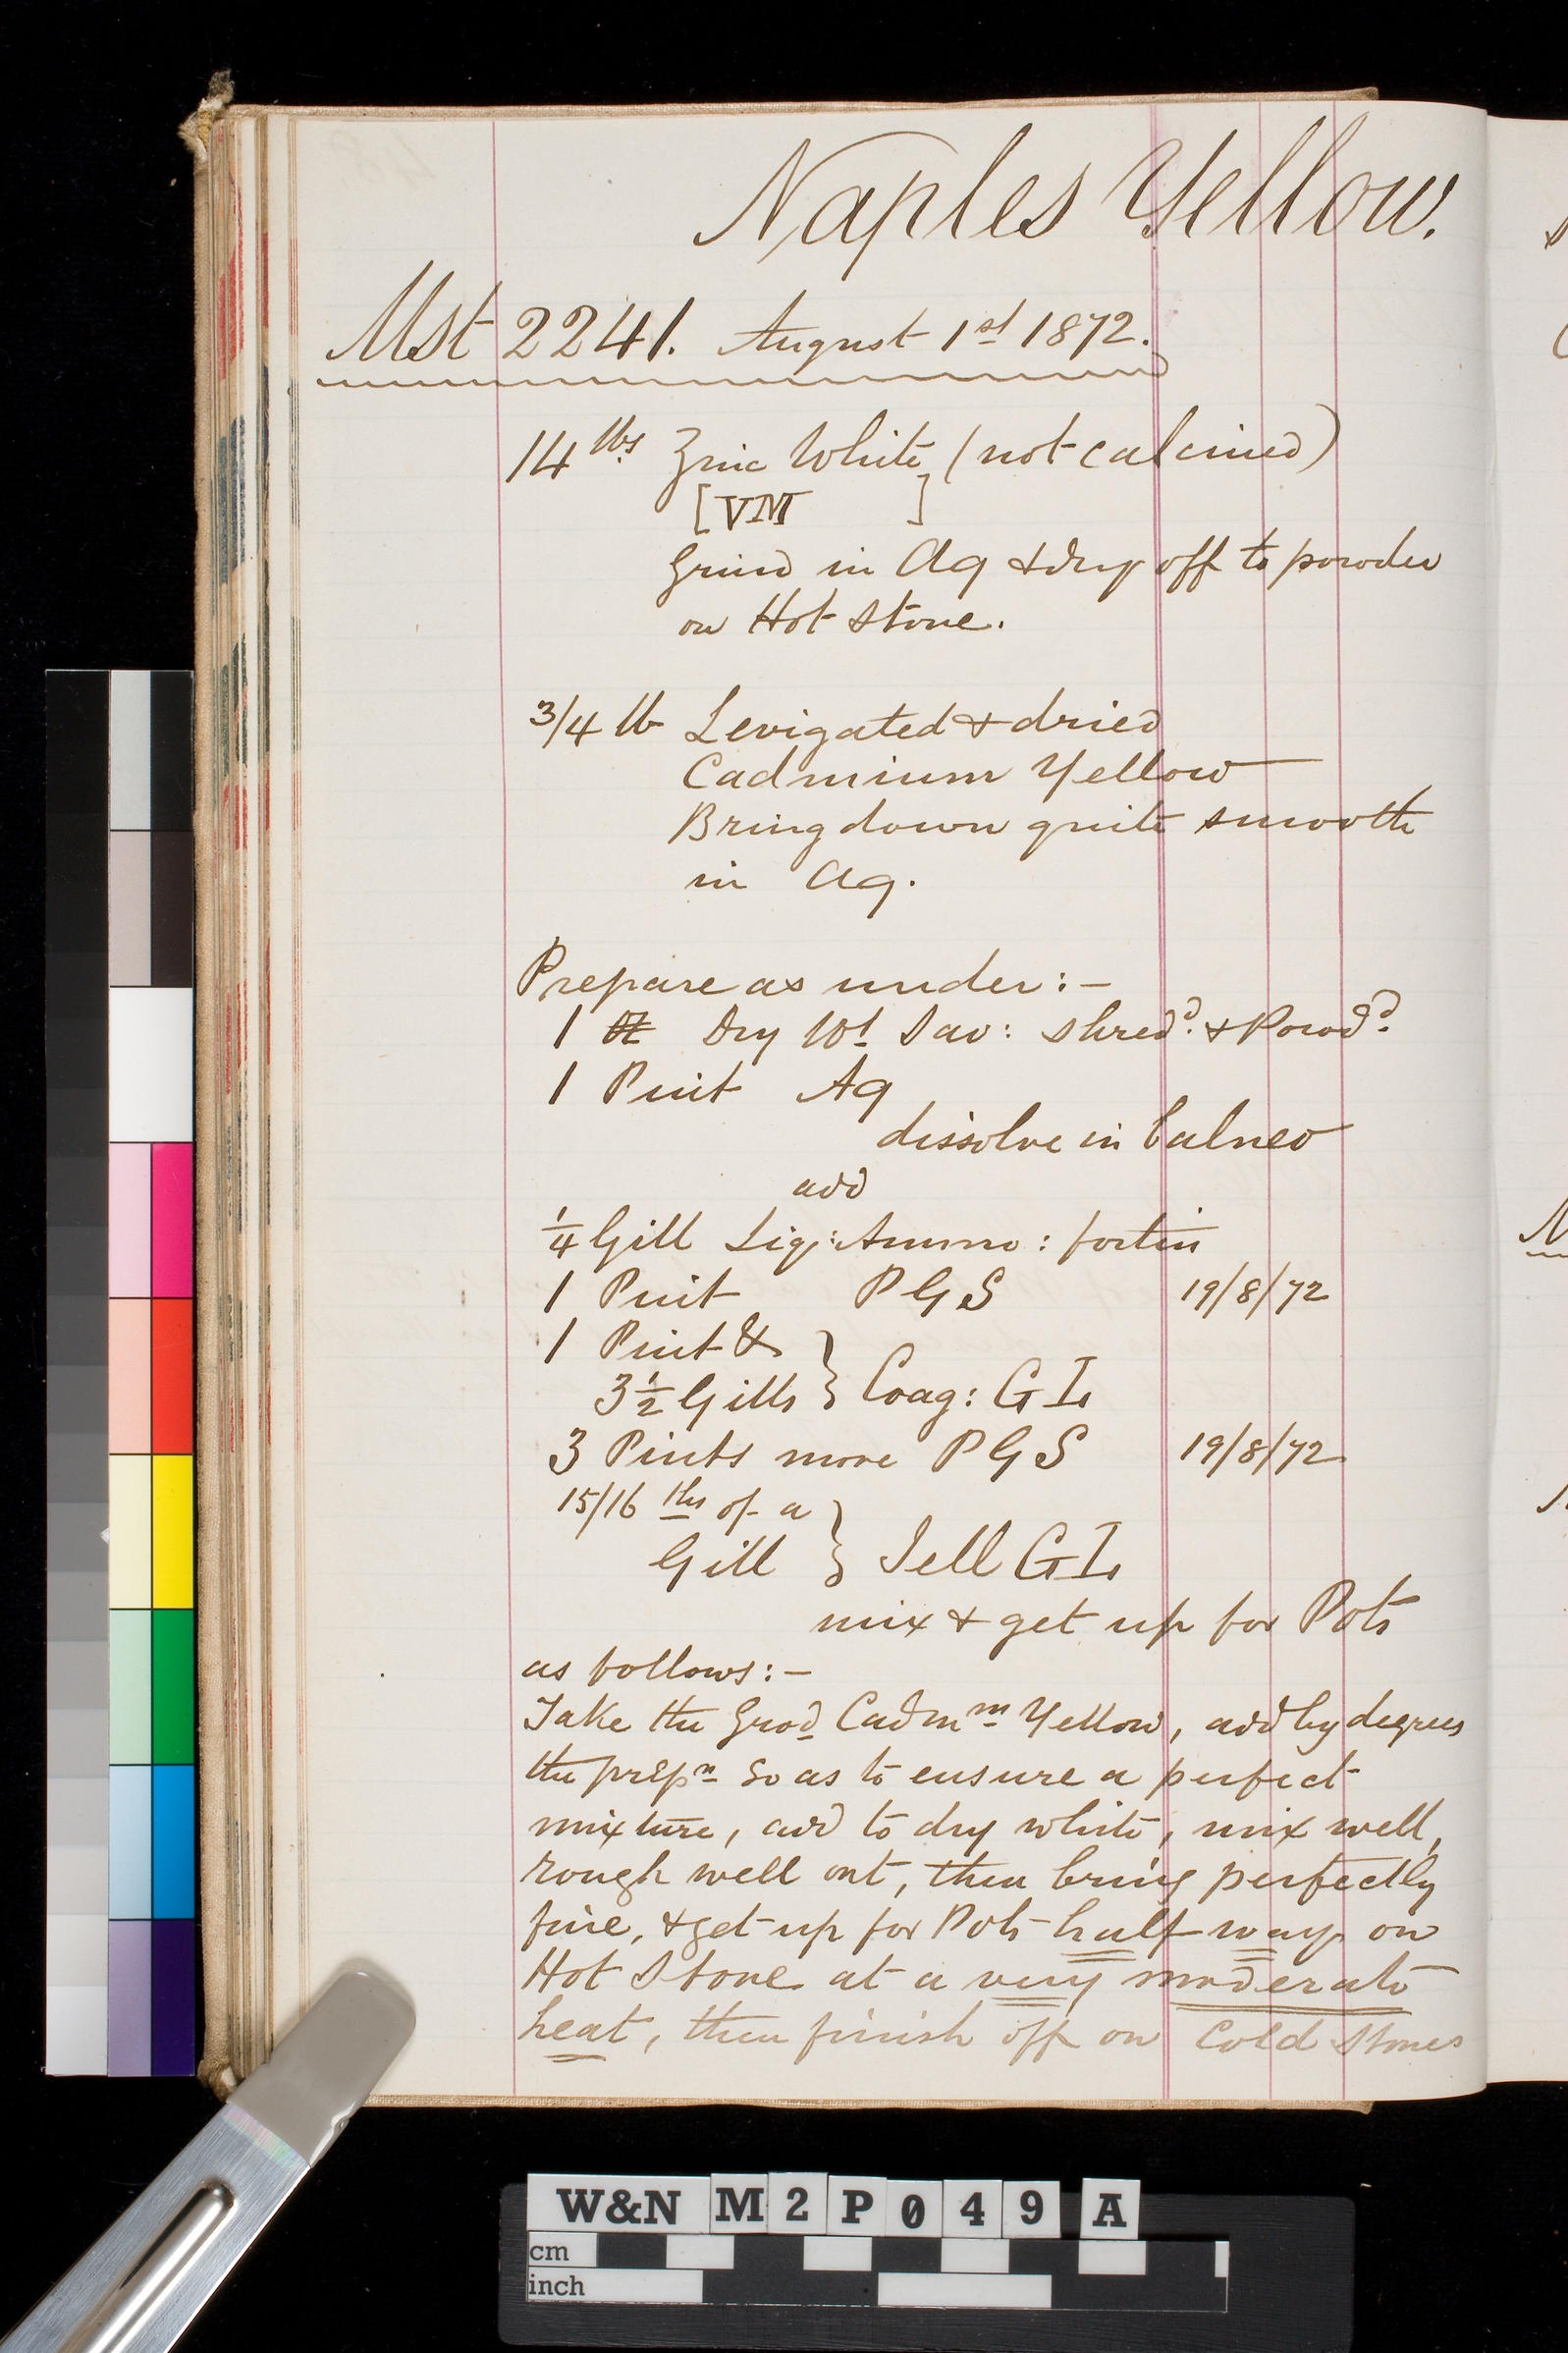 Naples Yellow.
Mst 2241. August 1st 1872.
14 lbs Zinc White (not calcined)
[VM ]
Grind in Aq & dry off to powder
on Hot Stone.
3/4 lb Levigated & dried
Cadmium Yellow
Bring down quite smooth
in Aq.
Prepare as under:-
1 Dry Wt Sav: shredd. & Powdd.
1 Pint Aq
dissolve in balneo
add
1/4 Gill Liq: Ammo: fortis
1 Pint P G S 19/8/72
1 Pint &
3 1/2 Gills } Coag: G L
3 Pints more P G S 19/8/72
15/16 ths of a
Gill } Jell G L
mix & get up for Pots
as follows:-
Take the Grod Cadmm Yellow, add by degrees
the prepn so as to ensure a perfect
mixture, add to dry white, mix well,
rough well out, then bring perfectly
fine, & get up for Pots half way on
Hot Stone at a very moderate
heat, then finish off on Cold Stones
W&N M2P049 A
cm
inch